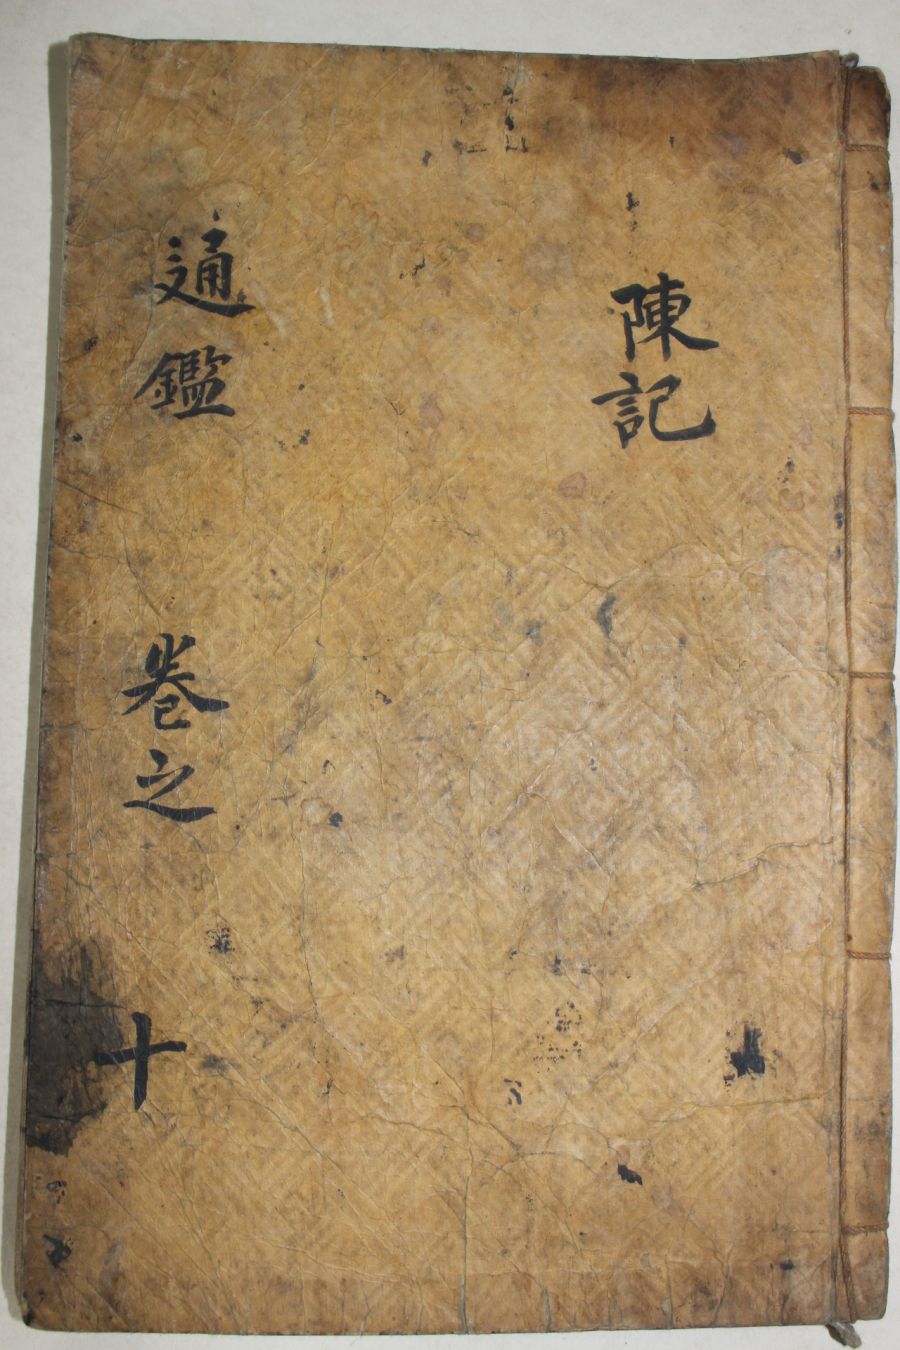 陳記
通鑑 卷之 十